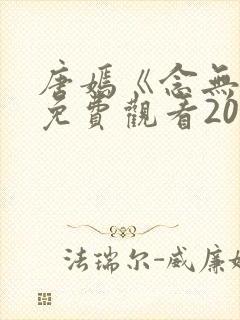 唐嫣《念無
免費觀看20
法瑞尔-威廉